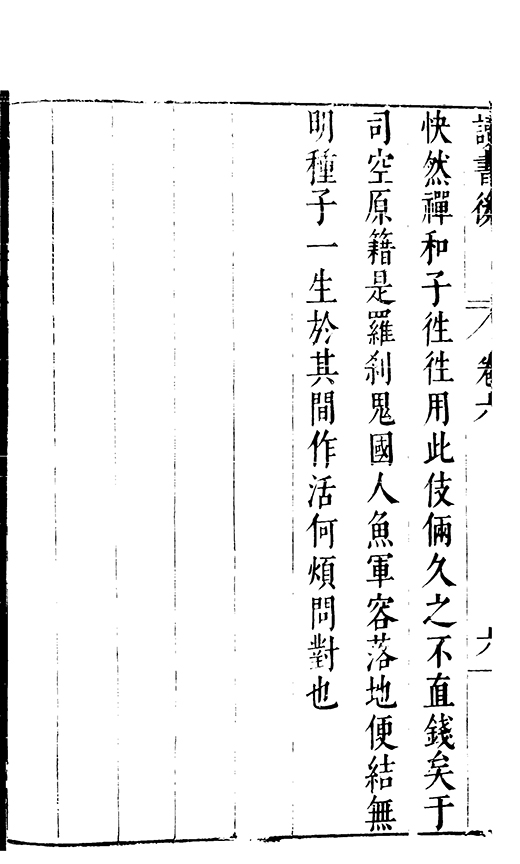 讀書後 卷六 六
快然禪和子徃徃用此伎倆久之不直錢矣于
司空原籍是羅刹鬼國人魚軍容落地便結無
明種子一生於其間作活何煩問對也